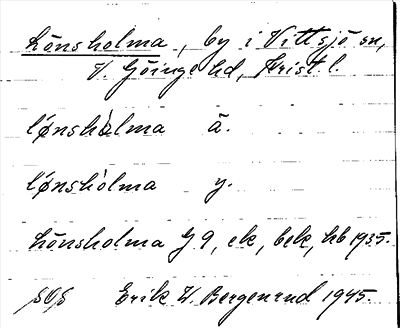 Lönsholma, by i Vittsjö sn,
V. Göinge hd, Krist. l.
lønshòlma ä.
lønshòlma y.
Lönsholma J 9, ek, bek, hb 1935.
Erik W. Bergenrud 1945.